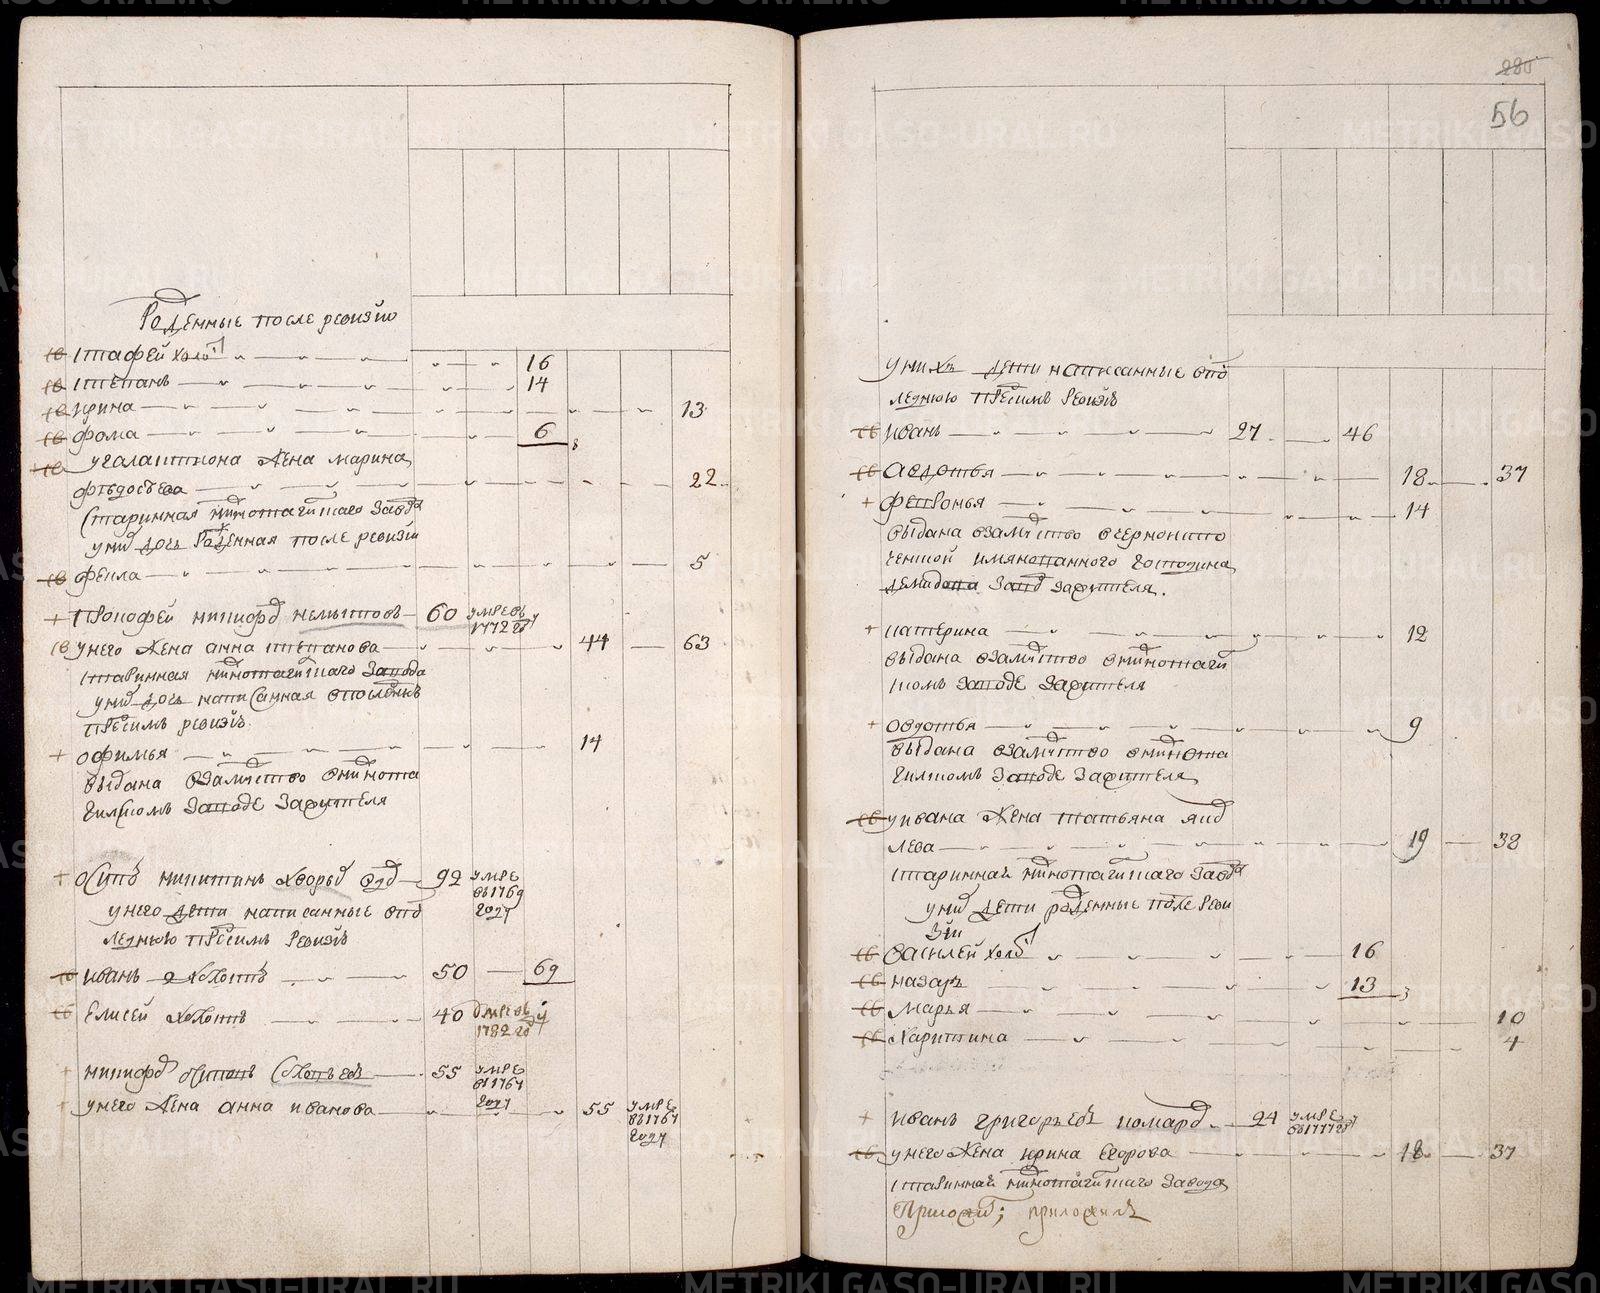 Роденные после ревизіи
16
степанъ 14
ирина 13
фома 6
угалактиона жена марина
федосеева 22
старинная нижнотагилского завода
унихъ дочь роденная после ревизіи
фекла 5
прокофей никифоровъ 60 умре въ
1772 году
унего жена анна степанова 44 63
старинная нижнотагилского завода
унихъ дочь написанная впоследнюю
пред симъ ревизіи
офимья 14
выдана взамужство внижнота
гилскомъ заводе зажителя
осипъ никитинъ 92 умре
въ 1769
году
унего дети написанные впо
леднюю пред симъ ревизіи
иванъ холостъ 50 69
елисей холостъ 40 умре въ
1782 году
никифоръ осиповъ 55 умре
въ 1767
году
унего жена анна иванова 55 умре
въ 1767
году
285
56
унихъ дети написанные впо
леднюю пред симъ ревизіи
иванъ 27 46
авдотья 18 37
февронья 14
выдана взамужство вчерноисто
ченской имянованного господина
демидова завод зажителя.
катерина 12
выдана взамужство внижнотаги
скомъ заводе зажителя
овдотья 9
выдана взамужство внижнота
гилскомъ заводе зажителя
уивана жена татьяна яков
лева 19 38
стариннаѧ нижнотагилского завода
унихъ дети роденные после реви
зіи
василей холостъ 16
назаръ 13
марья 10
харитина 4
иванъ григорьевъ 24 умре
въ 1777 году
унего жена ирина егорова 18 37
стариннаѧ нижнотагилского завода